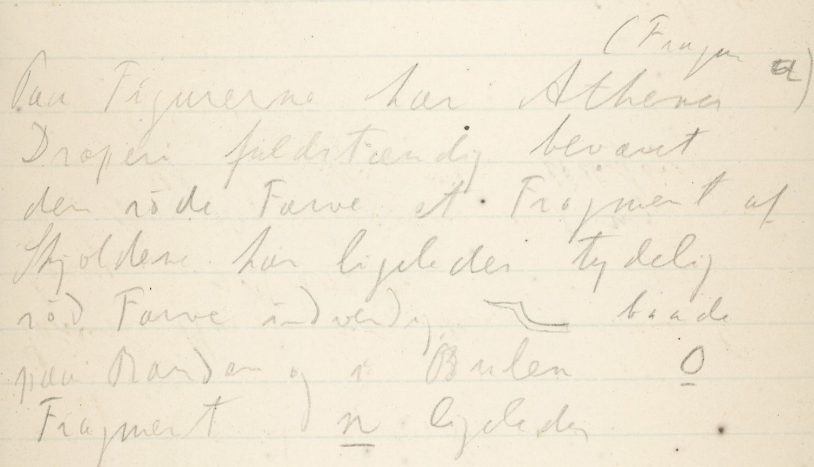 (Fragm a)
Paa Figurerne har Athenas
Draperi fuldstændig bevaret
den röde Farve et Fragment af
Skjoldene har ligeledes tydelig
röd Farve indvendig baade
paa Randen og i Bulen O
Fragment n ligeledes